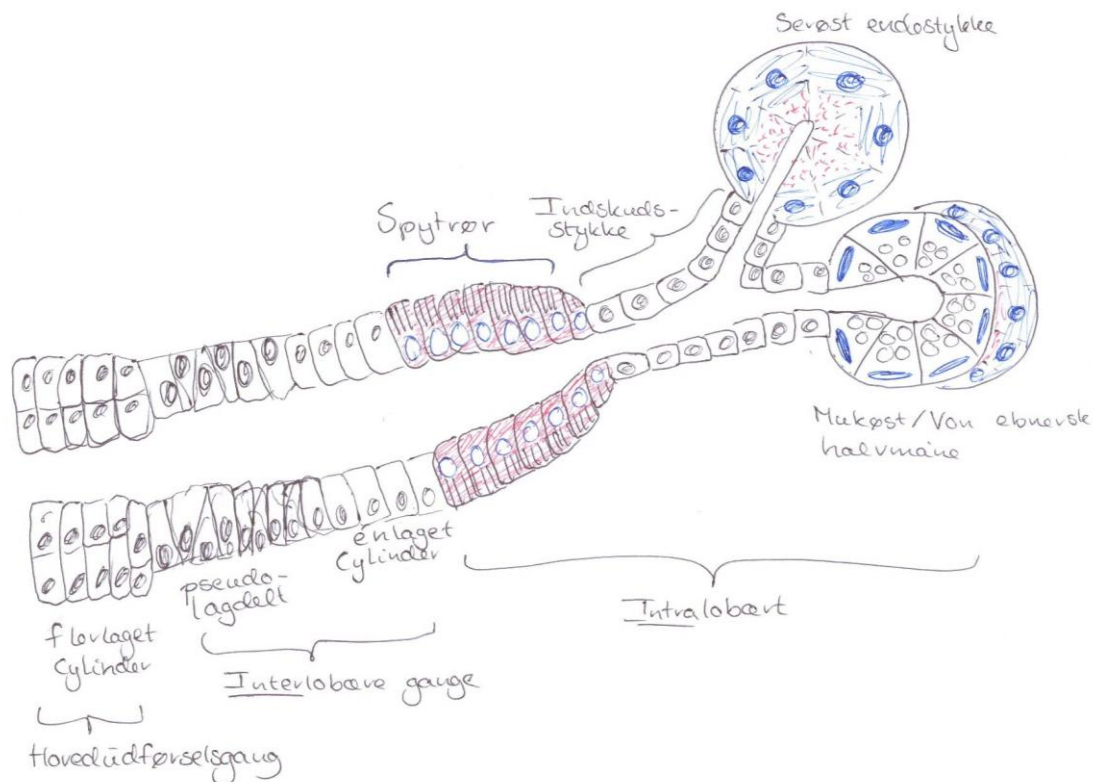 Serøst endestykke
Spytrør
Indskuds-
stykke
Mukøst/Von ebnersk
halvmåne
énlaget
cylinder
pseudo-
lagdelt
Intralobært
flerlaget
cylinder
Interlobære gange
Hovedudførselsgang